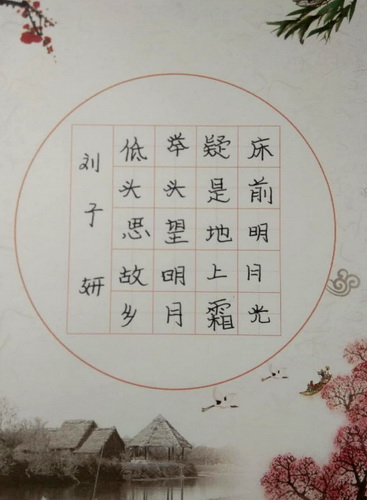 床前明月光
疑是地上霜
举头望明月
低头思故乡
刘子妍